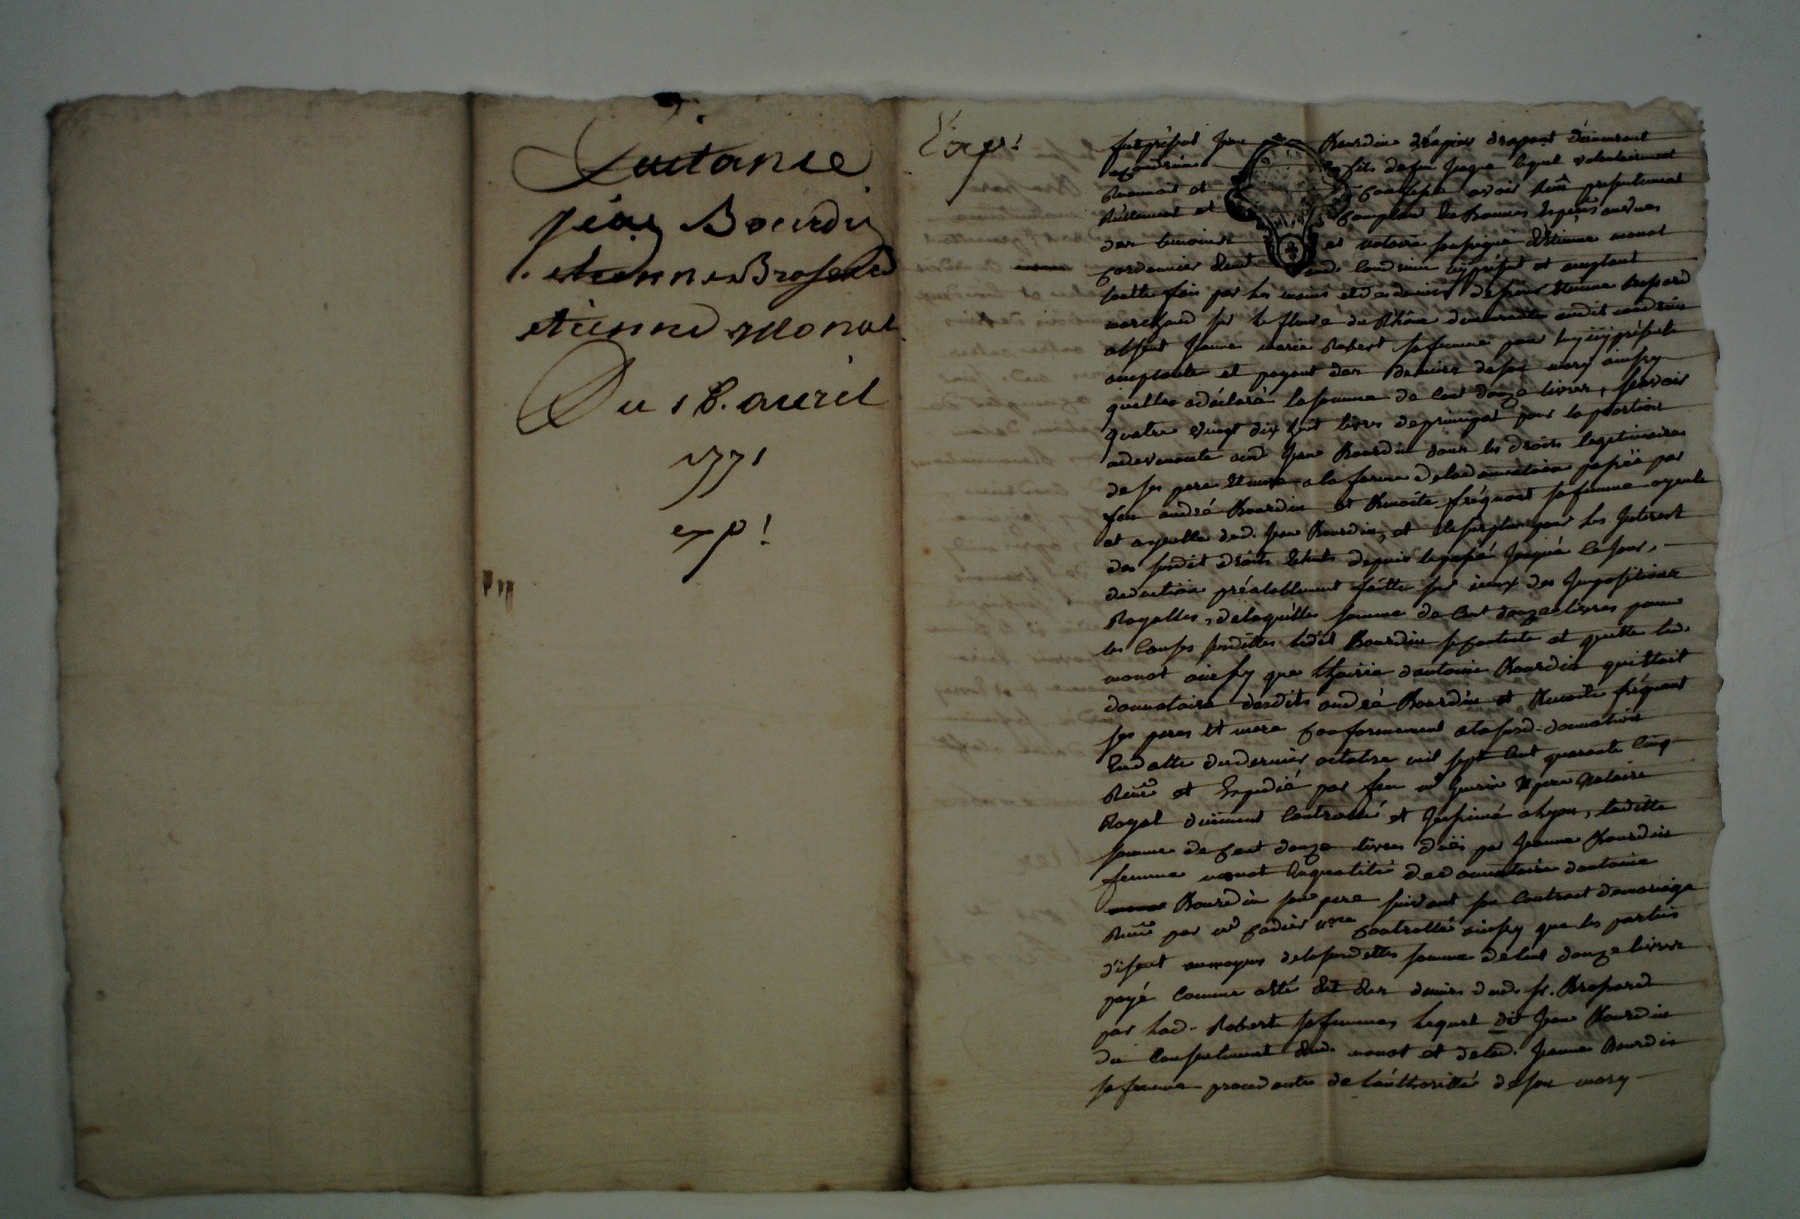 Quitance
jean Bourdin
etienne Brossard
etienne Monat
Du 18. avril
1771
exp!
Exp!
fut présent Jean Bourdin drapier drapant demeurant
a Condrieu fils de feu Jaque lequel volontairement
Confesse avoir presentement
Reellement et Comptant
des temoins et notaire soussigné d'Etienne monat
cordonnier dud. Condrieu icy présent et acceptant
toutte fois par les mains et des deniers de sieur Etienne Brossard
marchand sur le fleuve du Rhône demeurant audit condrieu
absent Jeanne marie Robert sa femme pour luy icy présente
acceptante et payant des deniers de son mary ainsy
quelle a déclaré la somme de Cent douze livres, scavoir
quatre vingt dix huit livres de principal pour la portion
advenante aud. Jean Bourdin dans les droits legitimaires
de ses pere et mere a la forme de la donnation passée par
feu andré Bourdin et Benoite fréquant sa femme ayeule
et ayeulle dud. Jean Bourdin, et le surplus pour les Interest
des susdit droits échuts depuis le passé Jusqu'a ce jour,
deduction préalablement faitte sur iceux des Impositions
Royalles, de laquelle somme de Cent douze livres pour
les Causes susdittes ledit Bourdin se contente et quitte led.
monat ainsy que l'hoirie d'antoine Bourdin qui étoit
donnataire desdits andré Bourdin et Benoite fréquant
ses peres et mere Conformement a la susd. donnation
En datte du dernier octobre mil sept Cent quarante Cinq
Recue et Expedié par feu me Guerin pere notaire
Royal duement Controllé et Insinué a Lyon, laditte
somme de Cent douze livres düe par Jeanne Bourdin
femme monat En qualité de donnataire d'antoine
Bourdin son pere suivant son Contract de mariage
Recue par me Controllé ainsy que les parties
disent au moyen de la susditte somme de Cent douze livres
payé Comme a été dit des deniers dud. sr. Brossard
par lad. Robert sa femme, lequel dit Jean Bourdin
du Consentement dud. monat et de lad. Jeanne Bourdin
sa femme procedante de l'authorité de son mary